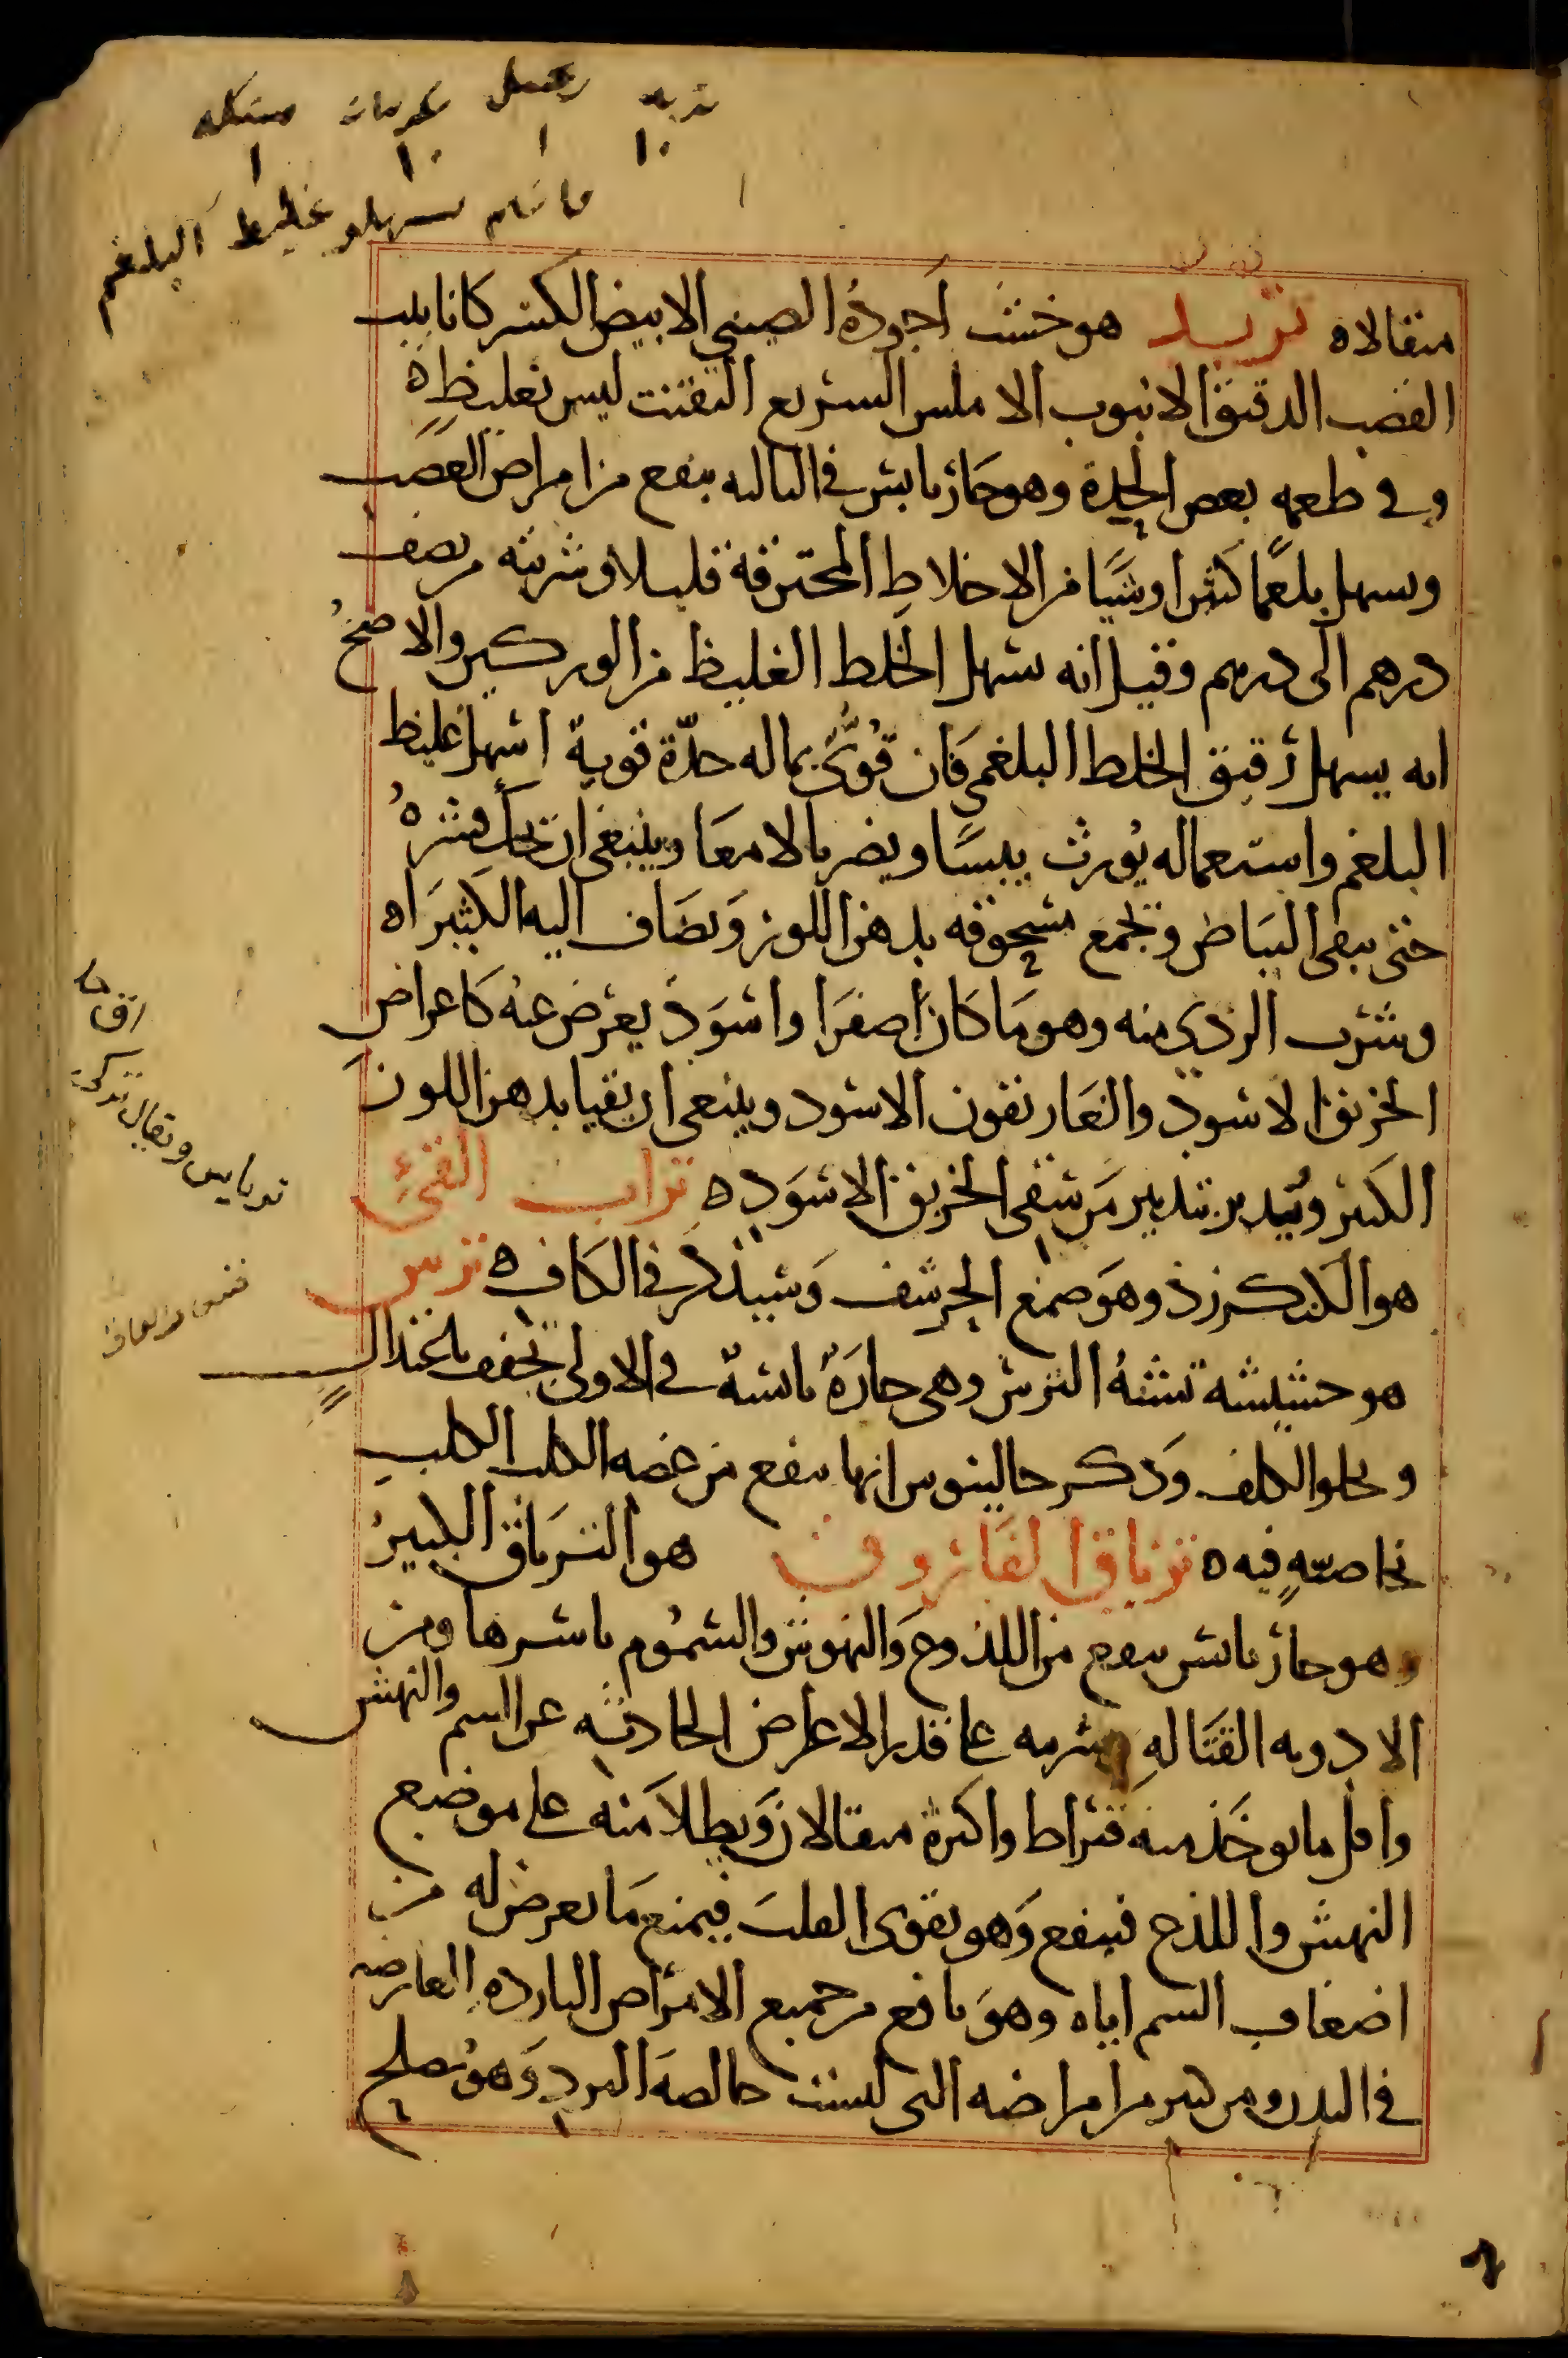 تربد
غليظ البلغم
مثقالاه تربد هو خشب أجوده الصيني الابيض الكسر كانابيب
القصب الدقيق الانبوب الاملس السريع التفتت ليس بغليظ ه
وفي طعمه بعض الحدة وهو حار يابس في الثالثه ينفع من امراض العصب
ويسهل بلغما كثيرا وشيا من الاخلاط المحترقة قليلا وشربته من نصف
درهم الى درهم وقيل انه يسهل الخلط الغليظ من الوركين والاصح
انه يسهل رقيق الخلط البلغمي فان قوي بماله حدة قوية اسهل غليظ
البلغم واستعماله يورث يبسا ويضر بالامعا وينبغي ان يحك قشره
حتى يبقى البياض ويجمع مسحوقه بدهن اللوز ويضاف اليه الكثيراه
وشرب الردي منه وهو ما كان اصفرا واسود يعرض عنه كاعراض
الخربق الاسود والغاريقون الاسود وينبغي ان يقيا بدهن اللوز
الكثير ويدبر بتدبير من سقي الخربق الاسود ه تراب القيء
هو الكنكرزذ وهو صمغ الحرشف وسيذكر في الكاف ه ترس
هو حشيشه تشبه الترس وهي حارة يابسة في الاولى تجفف باعتدال
وتجلو الكلف وذكر جالينوس انها تنفع من عضه الكلب الكلب
بخاصية فيه ه ترياق الفاروق هو الترياق الكبير
وهو حار يابس ينفع من اللذوع والنهوش والسموم باسرها ومن
الادويه القتاله وشربه على قدر الاعراض الحادثه عن السم والنهش
واقل ما يوخذ منه قيراط واكثره مثقالان ويطلا منه على موضع
النهش واللذع فينفع وهو يقوي القلب فيمنع ما يعرض له من
اضعاف السم اياه وهو نافع من جميع الامراض البارده العارضه
في البدن ومن كثير من امراضه التي ليست خالصة البرد وهو يصلح